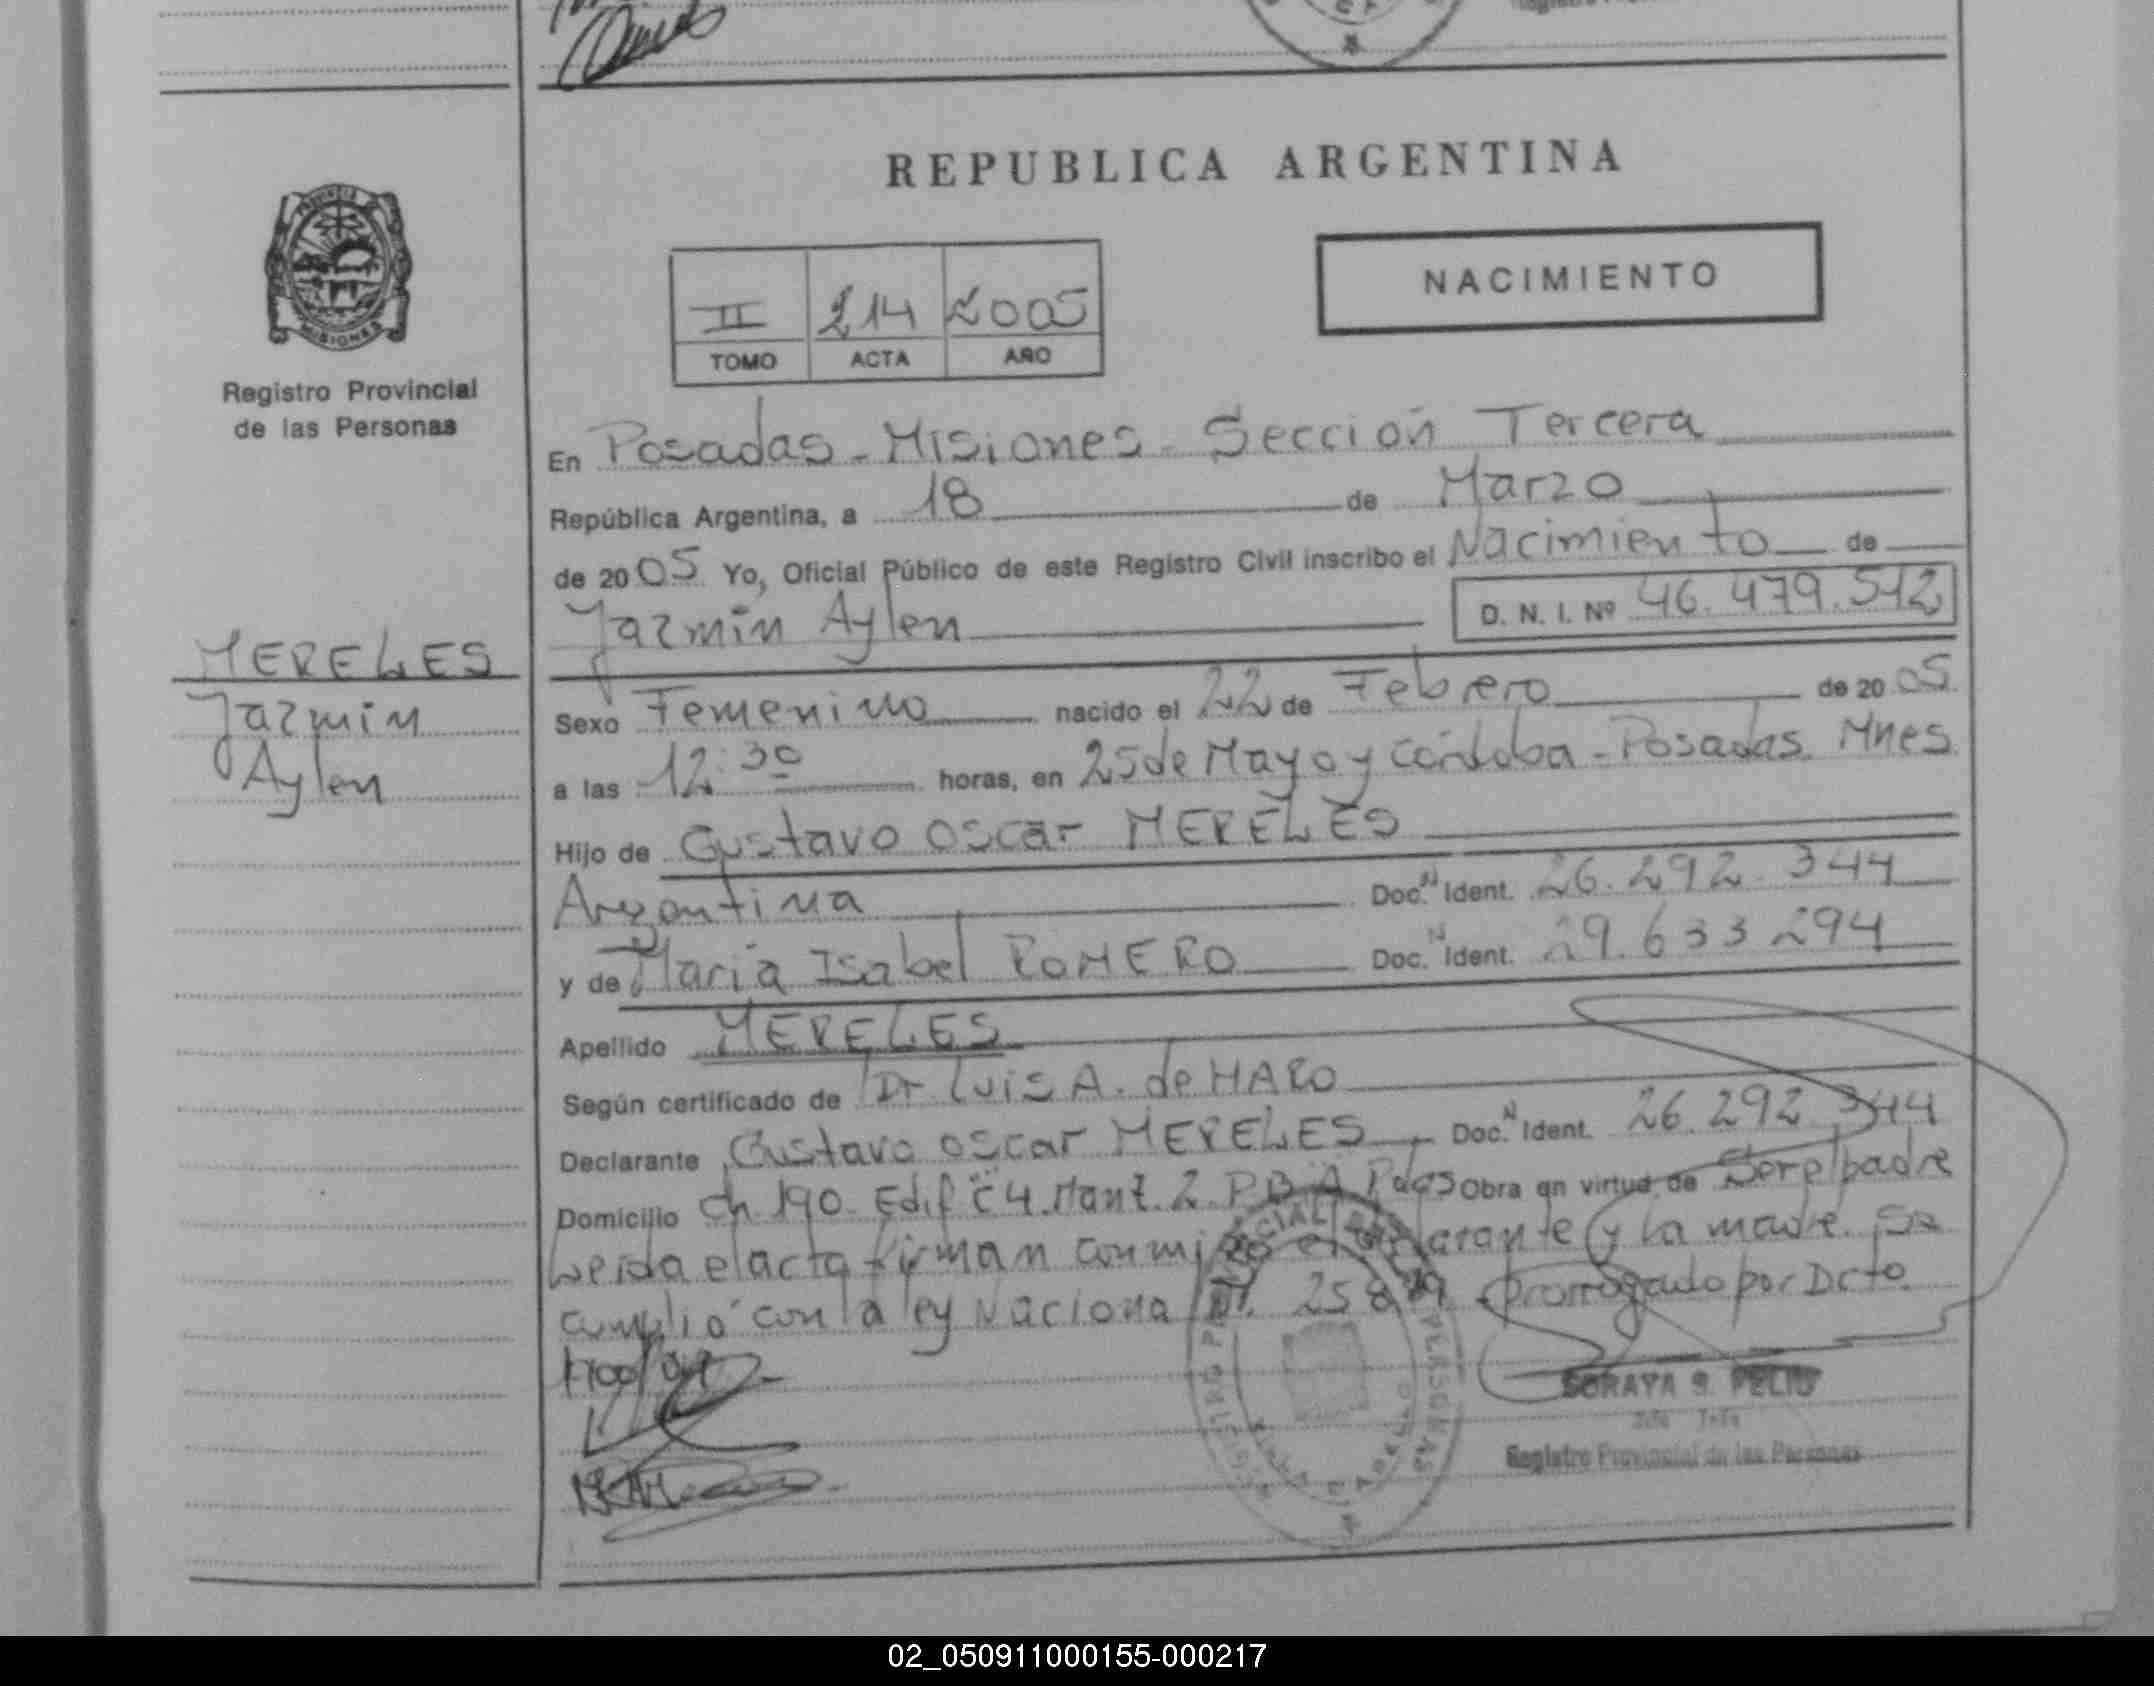 REPUBLICA ARGENTINA
NACIMIENTO
II 214 2005
TOMO ACTA AÑO
PROVINCIA
MISIONES
Registro Provincial
de las Personas
MERELES
Jazmin
Aylen
En Posadas - Misiones - Sección Tercera
República Argentina, a 18 de Marzo
de 2005 Yo, Oficial Público de este Registro Civil inscribo el Nacimiento de
Jazmin Aylen D. N. I. Nº 46.479.512
Sexo Femenino nacido el 22 de Febrero de 2005
a las 12:30 horas, en 25 de Mayo y Córdoba - Posadas. Mnes
Hijo de Gustavo Oscar MERELES
Argentina Doc. N Ident. 26.292.344
y de Maria Isabel ROMERO Doc. N Ident. 29.633 294
Apellido MERELES
Según certificado de Dr Luis A. de HARO
Declarante Gustavo Oscar MERELES, Doc. N Ident. 26.292.344
Domicilio Ch 190. Edif C4. Manz. 2 P.B A Pdas Obra en virtud de Ser el padre
Leida el acta firman conmigo el y la madre. Se
cumplió con la ley Naciona prorrogado por Dcto.
SORAYA S. FELIU
Registro Provincial de las Personas
02_050911000155-000217